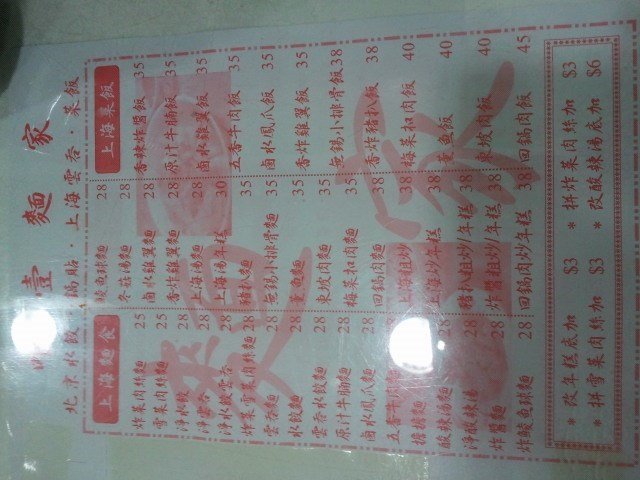 壹麵家
北京水餃·鍋貼·上海雲吞·菜飯
上海麵食
炸菜肉絲麵 25
雪菜肉絲麵 25
淨水餃 25
淨雲吞 25
淨水餃雲吞 28
炸菜雪菜肉絲麵 28
雲吞麵 28
水餃麵 28
雲吞水餃麵 28
原汁牛腩麵 28
鹵水鳳爪麵 28
五香牛肉麵
擔擔麵 28
酸辣湯麵 28
淨酸辣湯 28
炸醬麵 28
炸鯪魚球麵 28
鯪魚球麵 28
冬菇湯麵 28
鹵水雞翼麵 28
香炸雞翼麵 28
上海湯麵 28
上海湯年糕 30
豬扒麵 35
無錫小排骨麵 35
熏魚麵 35
東坡肉麵 35
梅菜扣肉麵 38
回鍋肉麵 38
上海粗炒 38
上海炒年糕 38
豬扒粗炒/年糕 38
炸醬粗炒/年糕 38
回鍋肉炒/年糕 38
上海菜飯
香辣炸醬飯 35
原汁牛腩飯 35
鹵水雞翼飯 35
五香牛肉飯 35
鹵水鳳爪飯 35
香炸雞翼飯 35
無錫小排骨飯 38
香炸豬扒飯 38
梅菜扣肉飯 40
熏魚飯 40
東坡肉飯 40
回鍋肉飯 45
* 改年糕底加 $3
* 拼炸菜肉絲加 $3
* 拼雪菜肉絲加 $3
* 改酸辣湯底加 $6